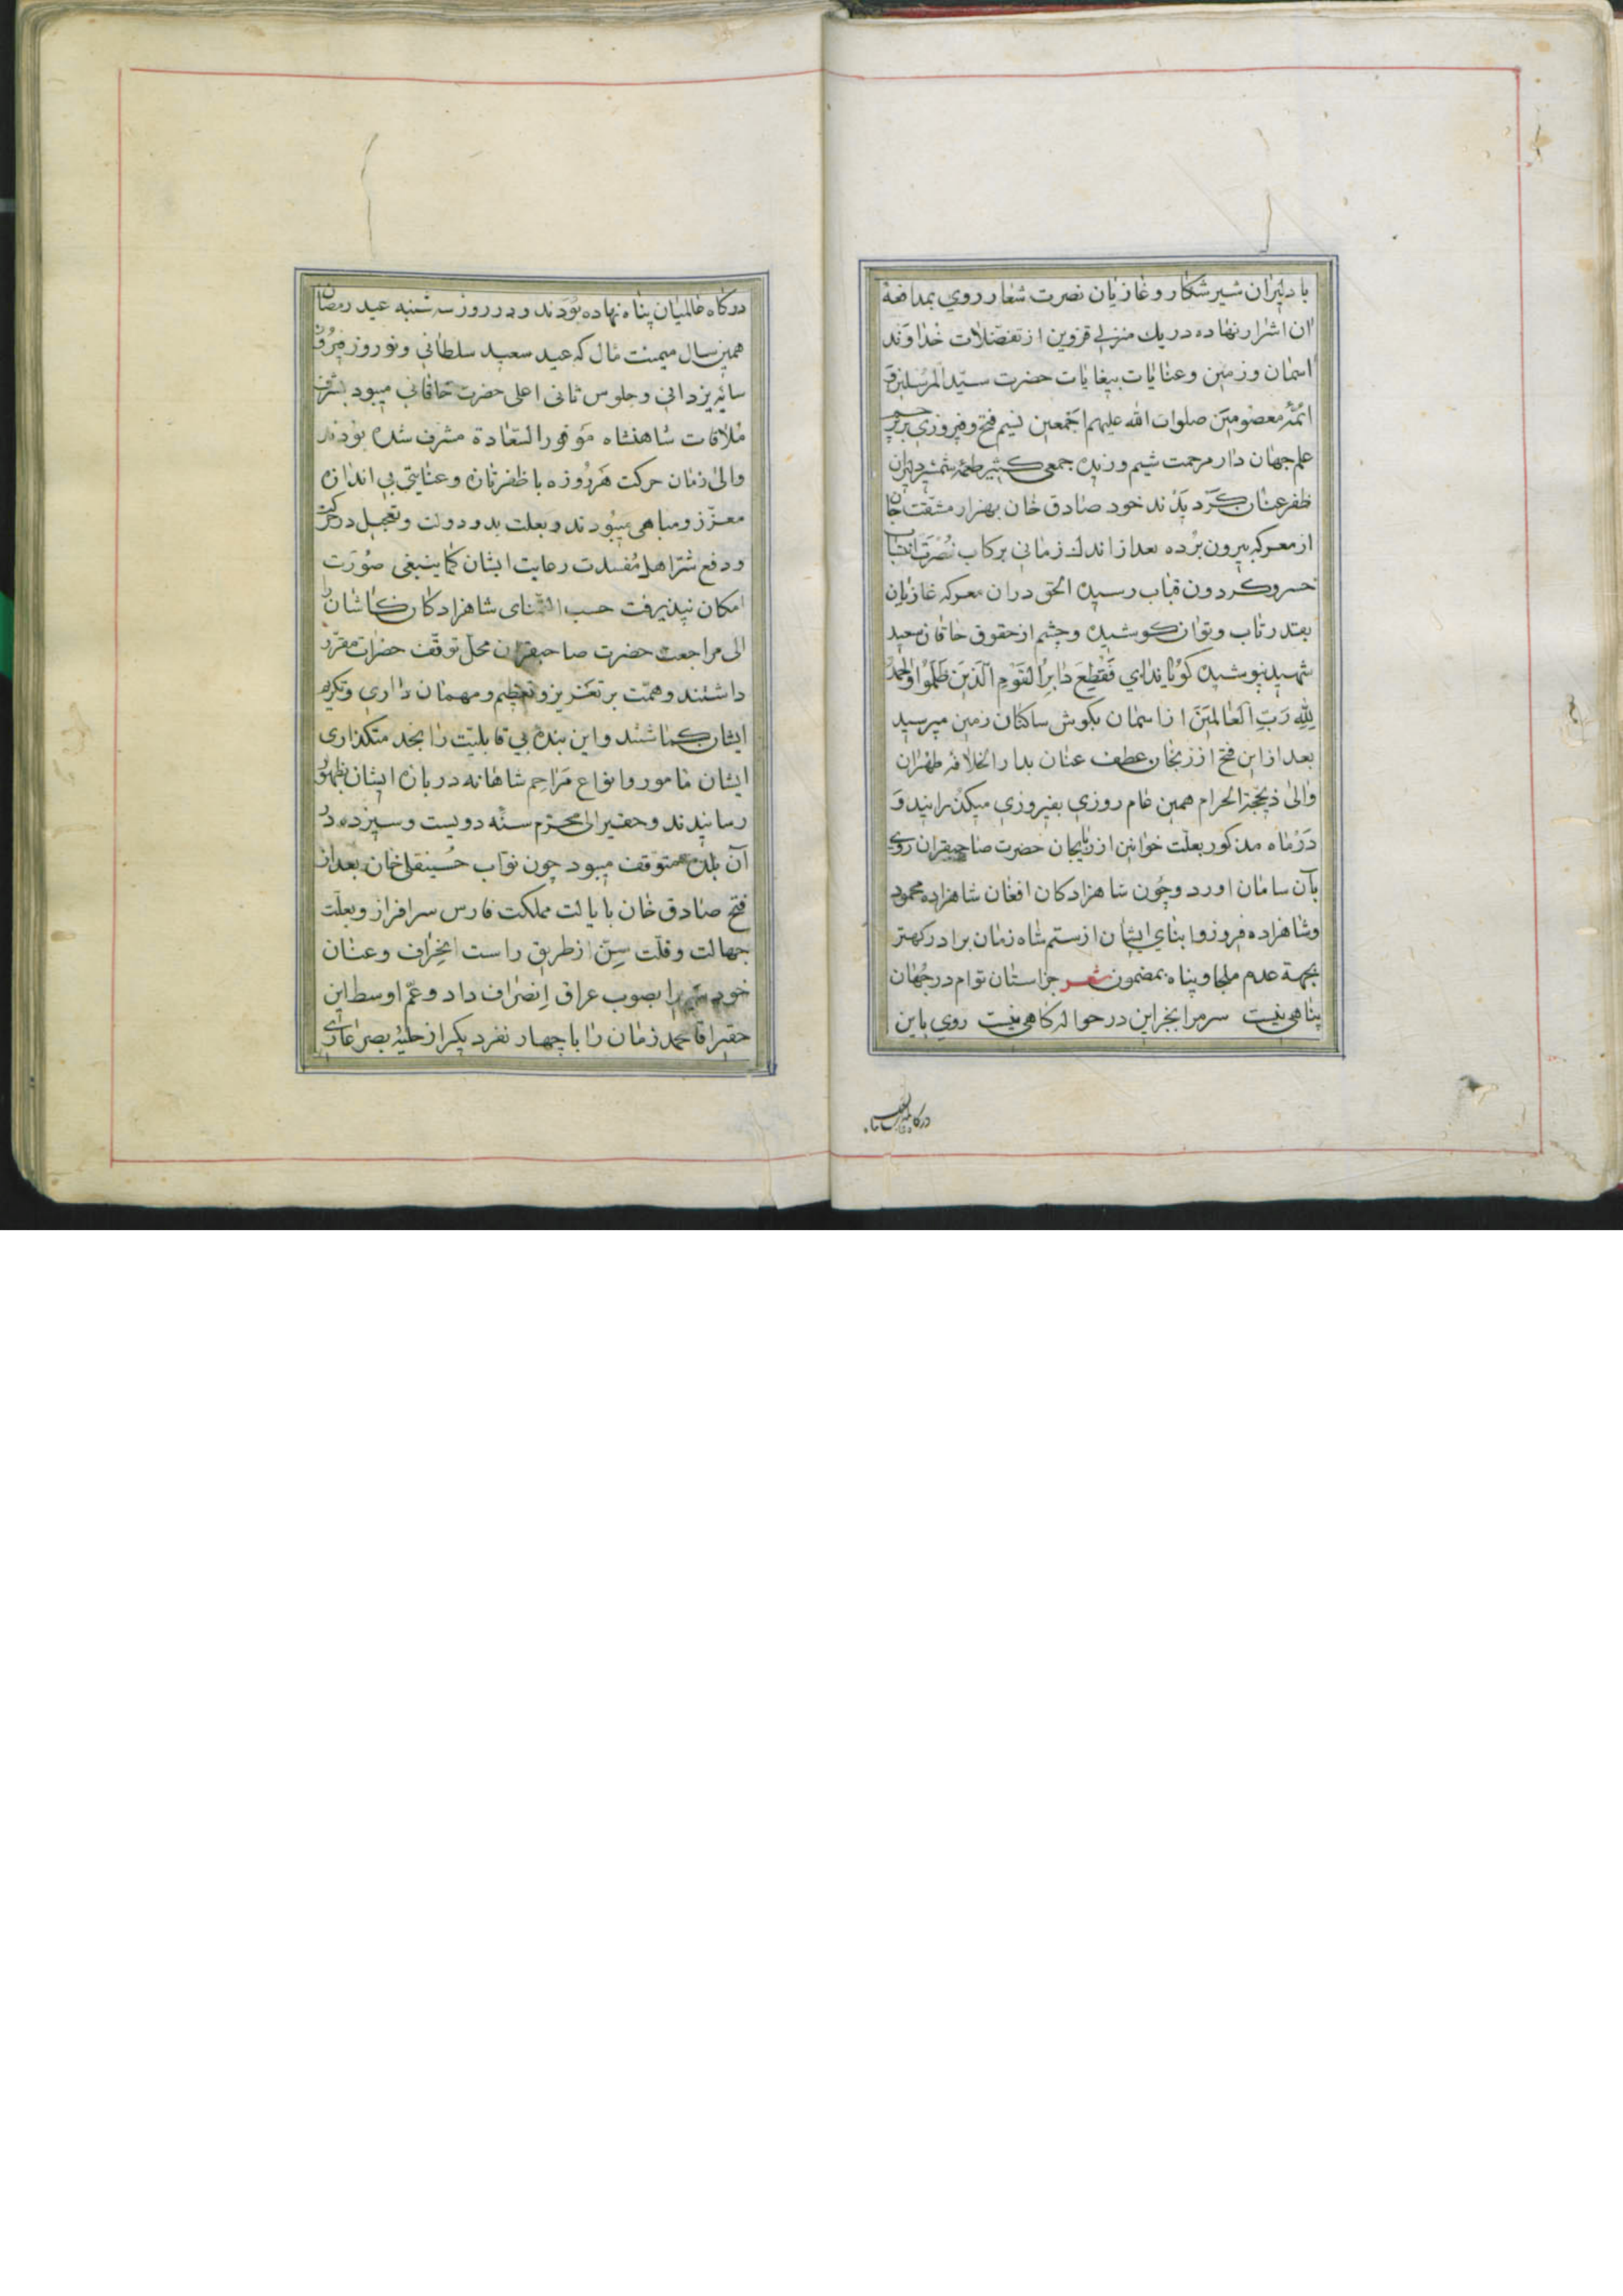 با دلیران شیر شکار و غازیان نصرت شعار روی بمدافعهٔ
ان اشرار نهاده در یك منزلی قزوین از تفضّلات خداوند
اسمان و زمین و عنایات بیغایات حضرت سیّد المرسلین و
ائمّهٔ معصومین صلوات الله علیهم اجمعین نسیم فتح و فیروزی بر پرچم
علم جهان دار مرحمت شیم وزیده جمعی کثیر طعمهٔ شمشیر دلیران
ظفر عنان کردیدند خود صادق خان بهزار مشقّت جان
از معرکه بیرون برده بعد از اندك زمانی برکاب نصرت انتساب
خسرو کردون قباب رسیده الحق در ان معرکه غازیان
بقدر تاب و توان کوشیده و چشم از حقوق خاقان سعید
شهید نپوشیده کویا ندای فَقُطِعَ دَابِرُ القَوْمِ الَّذینَ ظَلَمُوا وَالحَمْدُ
لِلّهِ رَبِّ الْعَالَمینَ از اسمان بکوش ساکنان زمین میرسید
بعد از این فتح از زنجان عطف عنان بدار الخلافهٔ طهران
و الی ذیحجة الحرام همین عام روزی بفیروزی میکذرانید و
در ماه مذکور بعلّت خوانین اذربایجان حضرت صاحبقران روی
بآن سامان اورد و چون شاهزادکان افغان شاهزاده محمود
و شاهزاده فیروز و ابنای ایشان از ستم شاه زمان برادر کهتر
بجهة عدم ملجا و پناه بمضمون شعر جز استان توام در جهان
پناهی نیست سر مرا بجز این در حواله کاهی نیست روی باین
درکاه عالمیان پناه
درکاه عالمیان پناه نهاده بودند و در روز سه شنبه عید رمضان
همین سال میمنت مال که عید سعید سلطانی و نوروز فیروز
سایهٔ یزدانی و جلوس ثانی اعلی حضرت خاقانی میبود بشرف
ملاقات شاهنشاه موفور السّعادة مشرف شده بودند
والی زمان حرکت هر روزه با ظفر تازه و عنایتی بی اندازه
معزّز و مباهی میبودند و بعلت بدو دولت و تعجیل در حرکت
و دفع شرّ اهل مفسدت رعایت ایشان کما ینبغی صورت
امکان نپذیرفت حسب شاهزادکان کاشان را
الی مراجعت حضرت صاحبقران محلّ توقّف حضرات مقرّر
داشتند و همّت بر تعزیز و تعظیم و مهمان داری و تکریم
ایشان کماشتند و این بندهٔ بی قابلیّت را بخدمتکذاری
ایشان مامور و انواع مراحم شاهانه در بارهٔ ایشان بظهور
رسانیدند و حقیر الی محرّم سنّه دویست و سیزده در
آن بلده متوقف میبود چون نوّاب حسینقلی خان بعد از
فتح صادق خان بایالت مملکت فارس سرافراز و بعلّت
جهالت و قلّت سِنّ از طریق راست انحراف و عنان
خود را بصوب عراق اِنصراف داد و عمّ اوسط این
حقیر اقا محمد زمان را با چهار نفر دیکر از حلیهٔ بصر عاری